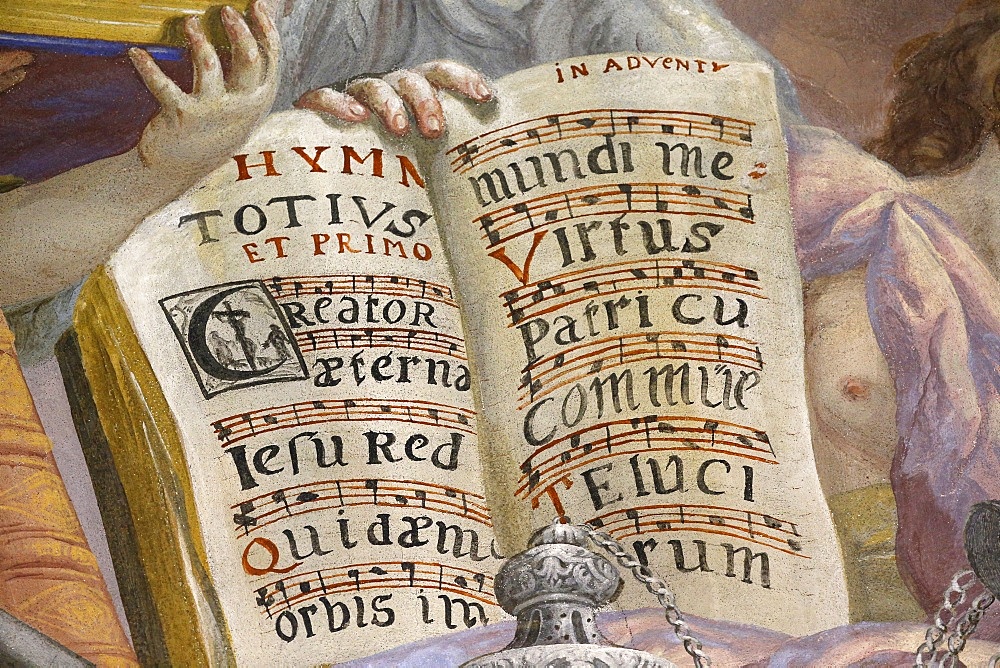 HYMN
TOTIVS
ET PRIMO
CREATOR
æterna
Iesu Red
Quidæm
orbis im
IN ADVENTV
mundi me
Virtus
Patri cu
commūe
Te luci
rum